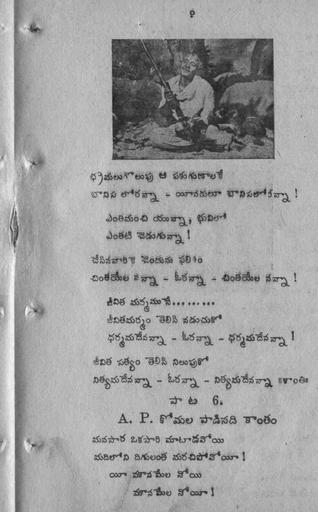 భ్రమలుగొలుపు ఆ పశుగుణాలకే
బానిస లోరన్నా - యీనరులూ బానిసలోకన్నా !
ఎంతమంచి యున్నా, భువిలో
ఎంతటి చెడుగున్నా !
చేసినవారికె చెందును ఫలితం
చింతయేల నన్నా - ఓరన్నా - చింతయేల నన్నా !
జీవిత మర్మమునే.........
జీవితమర్మం తెలిసి నడుచుకో
ధర్మమదేనన్నా - ఓరన్నా - ధర్మమదేనన్నా !
జీవిత సత్యం తెలిసి నిలుపుకో
నిత్యమదేనన్నా - ఓరన్నా - నిత్యమదేనన్నా
పాట 6.
A. P. కోమల పాడినది కాంతం
మనసార ఒకసారి మాటాడవోయి
మదిలోని దిగులంత మరచిపోవోయీ !
యీ మౌనమేల నోయి
మౌనమేల నోయీ !